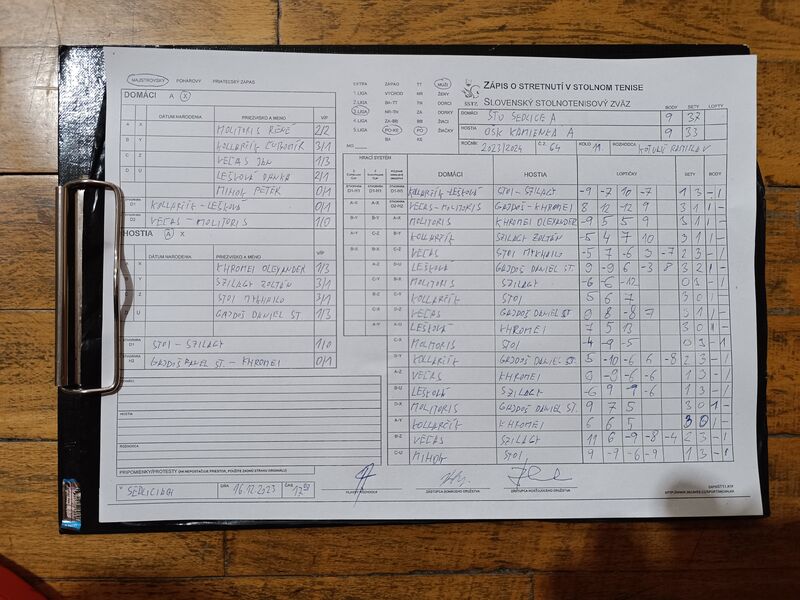 MAJSTROVSKÝ POHÁROVÝ PRIATEĽSKÝ ZÁPAS
DOMÁCI A X
DÁTUM NARODENIA PRIEZVISKO A MENO V/P
A X MOLITORIS RÉNÉ 2/2
B Y KOLLARČÍK ĽUBOMÍR 3/1
C Z VEĽAS JÁN 1/3
D U LEŠKOVÁ DANKA 2/1
MIHOK PETER 0/1
D1 KOLLARČÍK - LEŠKOVÁ 0/1
D2 VEĽAS - MOLITORIS 1/0
HOSTIA A X
DÁTUM NARODENIA PRIEZVISKO A MENO V/P
KHROMEI OLEXANDER 1/3
SZILAGY ZOLTÁN 3/1
STOJ MYKHAILO 3/1
U GAJDOŠ DANIEL ST 1/3
D1 STOJ - SZILAGY 1/0
GAJDOŠ DANIEL ST. - KHROMEI 0/1
DOMÁCI
HOSTIA
ROZHODCA
PRIPOMIENKY/PROTESTY (AK NEPOSTAČUJE PRIESTOR, POUŽITE ZADNÚ STRANU ORIGINÁLU)
V SEDLICIACH DŇA 16.12.2023 ČAS 17
EXTRA ZÁPAD TT MUŽI
1.LIGA VÝCHOD NR ŽENY
2.LIGA BA-TT TN DORCI
3.LIGA NR-TN ZA DORKY
4.LIGA ZA-BB BB ŽIACI
5.LIGA PO-KE PO ŽIAČKY
BA KE
SSTZ
ZÁPIS O STRETNUTÍ V STOLNOM TENISE
SLOVENSKÝ STOLNOTENISOVÝ ZVÄZ
BODY SETY LOPTY
DOMÁCI STO SEDLICE A 9 37
HOSTIA OŠK KAMIENKA A 9 33
ROČNÍK 2023/2024 Č.Z. 64 KOLO 11. ROZHODCA
HRACÍ SYSTÉM
DOMÁCI HOSTIA LOPTIČKY SETY BODY
KOLLARČÍK - LEŠKOVÁ STOJ - SZILAGY -9 -7 10 -7 1 3 - 1
VEĽAS - MOLITORIS GAJDOŠ - KHROMEI 8 12 -12 9 3 1 1 -
MOLITORIS KHROMEI OLEXANDER -9 5 5 9 3 1 1 -
KOLLARČÍK SZILAGY ZOLTÁN -5 4 7 10 3 1 1 -
VEĽAS STOJ MYKHAILO -5 7 -6 9 -7 2 3 - 1
LEŠKOVÁ GAJDOŠ DANIEL ST. 9 -9 6 -3 8 3 2 1 -
MOLITORIS SZILAGY -6 -6 -12 0 3 - 1
KOLLARČÍK STOJ 5 6 7 3 0 1 -
VEĽAS GAJDOŠ DANIEL ST 9 8 -8 7 3 1 1 -
LEŠKOVÁ KHROMEI 7 5 13 3 0 1 -
MOLITORIS STOJ -4 -9 -5 0 3 - 1
KOLLARČÍK GAJDOŠ DANIEL ST. 5 -10 -6 6 -8 2 3 - 1
VEĽAS KHROMEI 9 -8 -6 -6 1 3 - 1
LEŠKOVÁ SZILAGY -6 9 -9 -6 1 3 - 1
MOLITORIS GAJDOŠ DANIEL ST. 9 7 5 3 0 1 -
KOLLARČÍK KHROMEI 6 6 5 3 0 1 -
VEĽAS SZILAGY 11 6 -9 -8 -4 2 3 - 1
MIHOK STOJ 9 -9 -6 -9 1 3 - 1
HLAVNÝ ROZHODCA ZÁSTUPCA DOMÁCEHO DRUŽSTVA ZÁSTUPCA HOSŤUJÚCEHO DRUŽSTVA